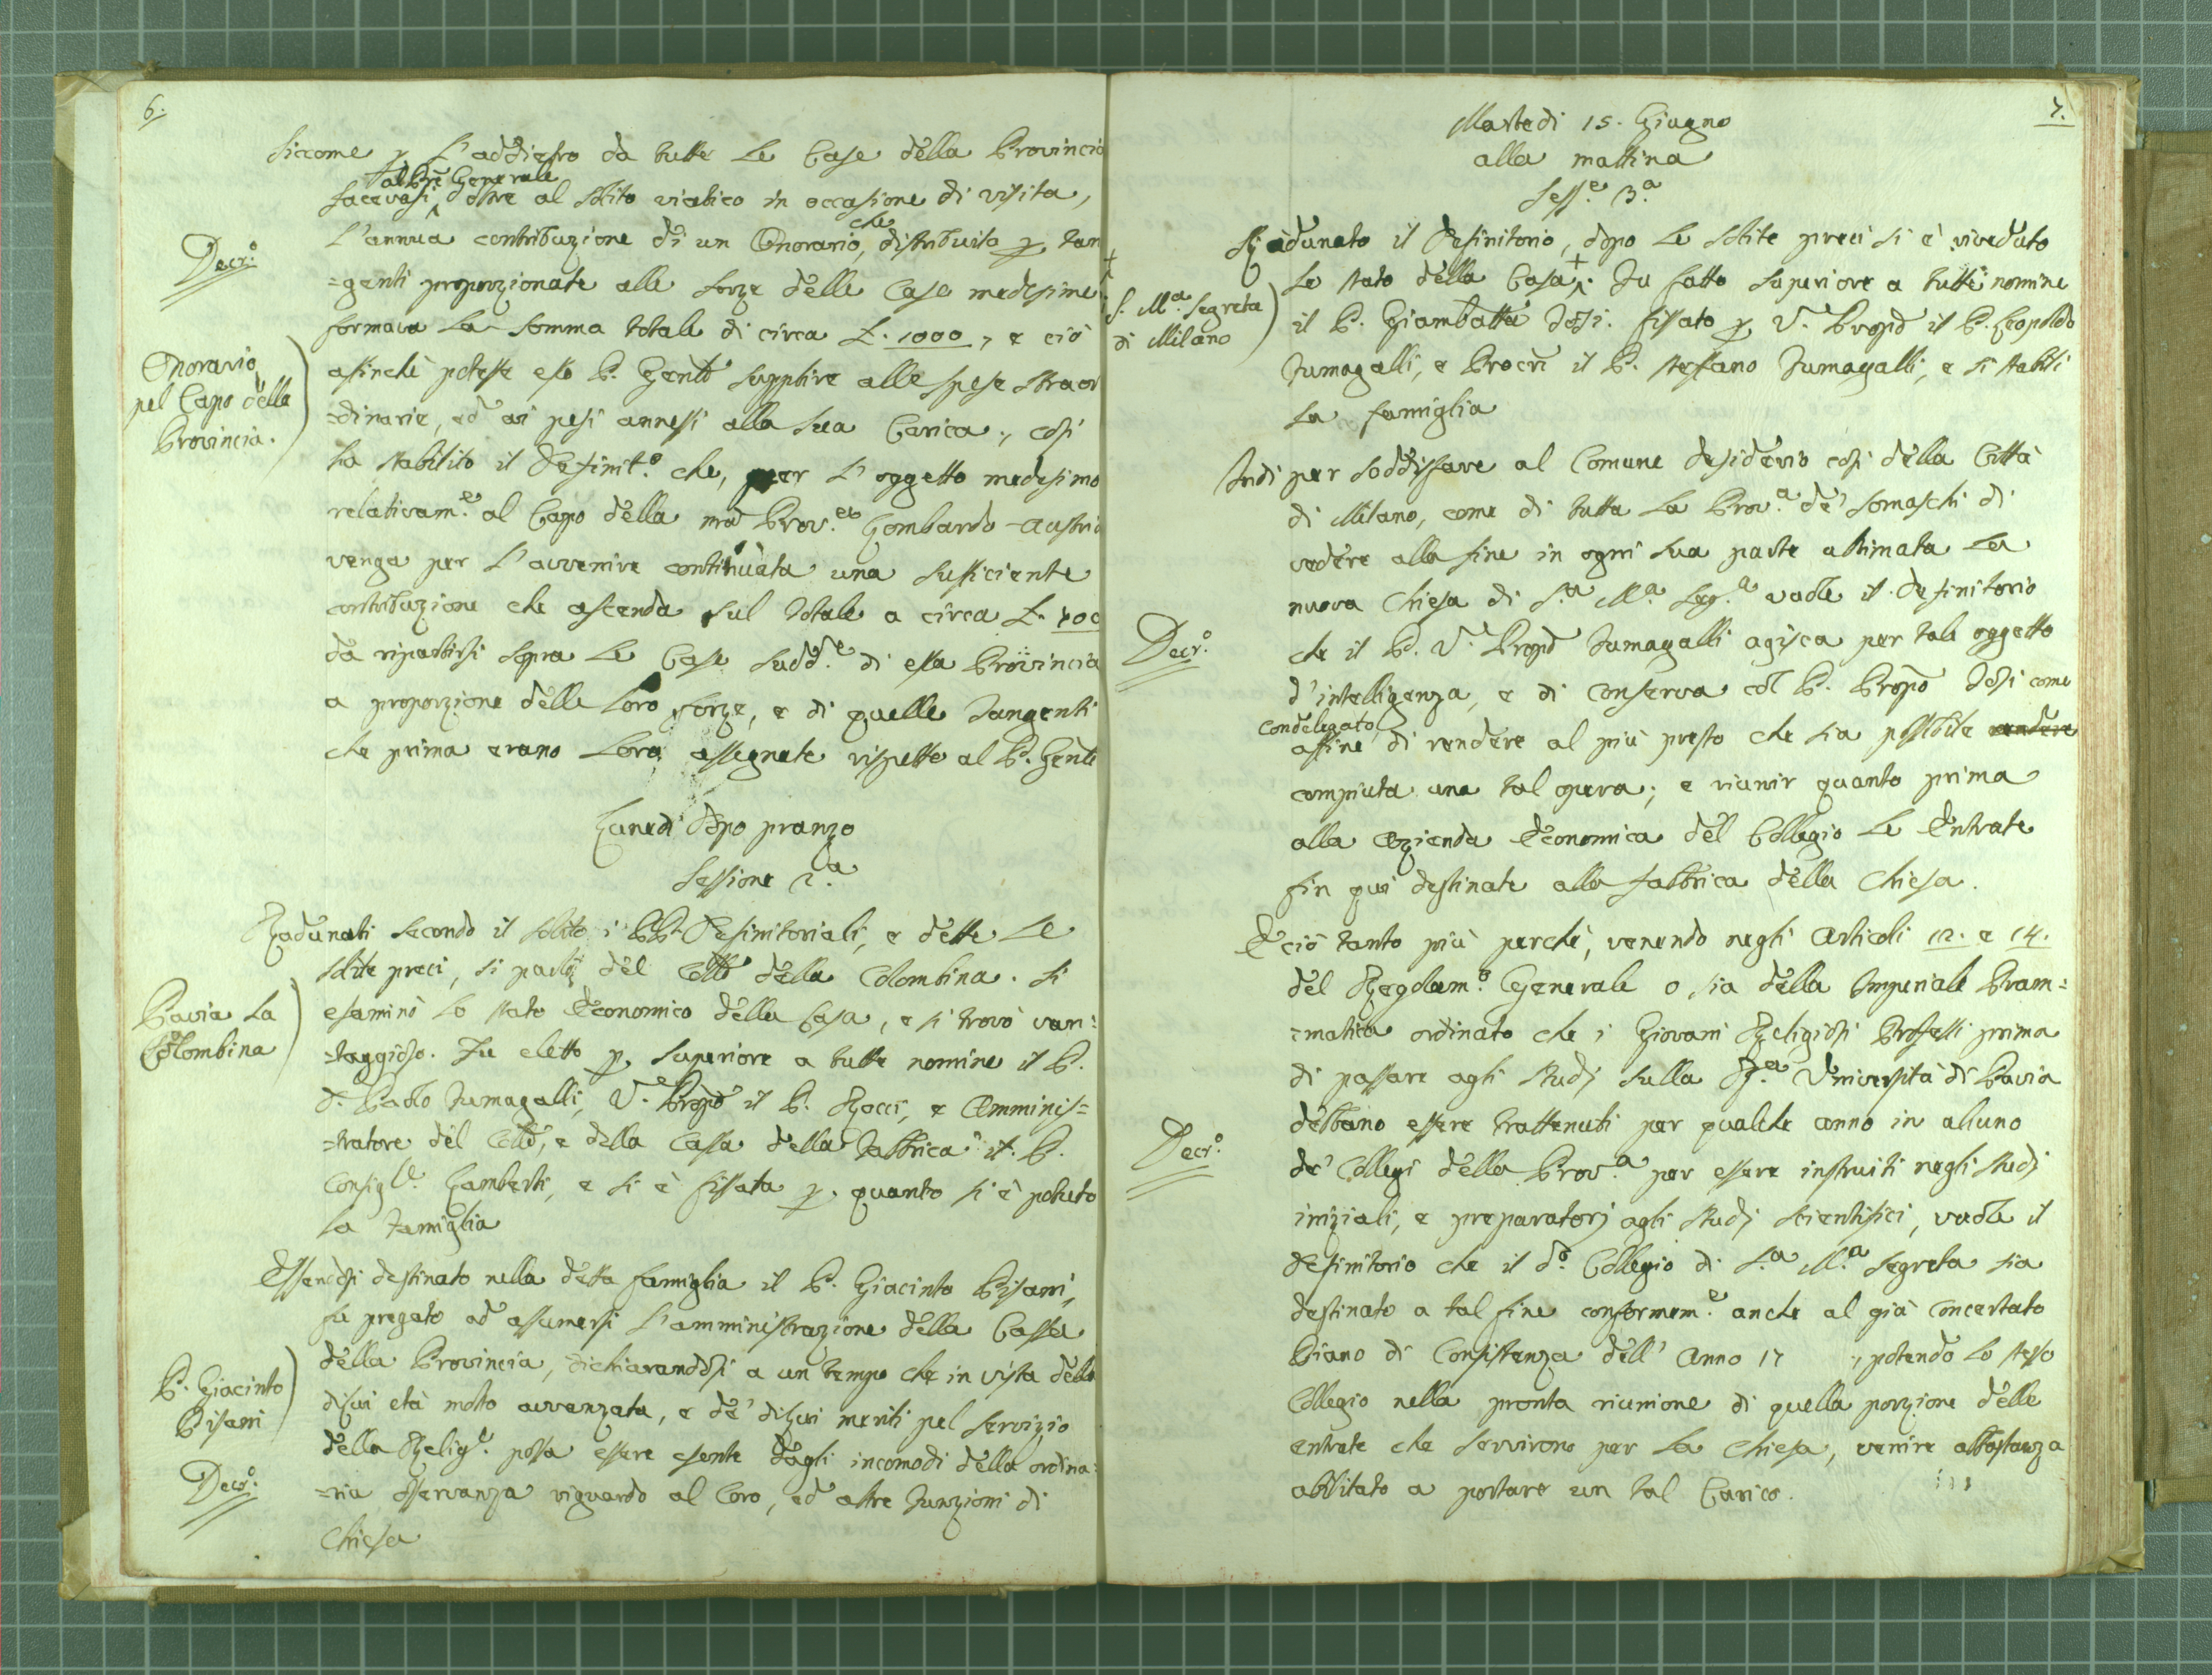 6.
Siccome p. l'addietro da tutte le Case della Provincia
al Pre Generale
facevasi, oltre al solito viatico in occasione di visita,
che
l'annua contribuzione di un Onorario, distribuito p. tan
Decr.o
=genti proporzionate alle forze delle Case medesime
formava la somma totale di circa L. 1000, e ciò
Onorario
pel Capo della
Provincia.
affinchè potesse esso P. Genle supplire alle spese straor
=dinarie, ed ai pesi annessi alla sua Carica; così
ha stabilito il Definit.o che, per l'oggetto medesimo
relativam.e al Capo della nra Prov.a Lombardo-Austria
venga per l'avvenire continuata una sufficiente
contribuzione che ascenda sul totale a circa L.
da ripartirsi sopra le Case sudd.e di essa Provincia
a proporzione delle loro forze, e di quelle Tangenti
che prima erano loro assegnate rispetto al P. Genle
Lunedì dopo pranzo
Sessione 2.a
Radunati secondo il solito i PP. Definitoriali, e dette le
solite preci, si parlò del Collo della Colombina. Si
Pavia la
Colombina
esaminò lo stato Economico della Casa, e si trovò van:
=taggioso. Fu eletto p. Superiore a tutte nomine il P.
D. Paolo Fumagalli, V. Prepo il P. Rocci, e Amminis=
=tratore del Collo, e della Cassa della Fabbrica il P.
Consigl.e Lamberti, e si è fissata p. quanto si è potuto
la Famiglia
Essendosi destinato nella detta famiglia il P. Giacinto Pisani,
fu pregato ad assumersi l'amministrazione della Cassa
della Provincia, dichiarandosi a un tempo che in vista della
P. Giacinto
Pisani
di lui età molto avvanzata, e de' di lui meriti pel servizio
della Relig.e possa essere esente dagli incomodi della ordina:
Decr.o
=ria osservanza riguardo al Coro, ed altre Funzioni di
Chiesa
7.
Martedì 15. Giugno
alla mattina
Sess.e 3.a
Radunato il Definitorio, dopo le solite preci si è riveduto
+
S. M.a Segreta
di Milano
lo stato della Casa +. Fu fatto Superiore a tutte nomine
il P. Giambatta Tosi. Fissato p. V. Prepo il P. Leopoldo
Fumagalli, e Procre il P. Steffano Fumagalli, e si stabilì
la famiglia
Indi per soddisfare al Comune desiderio così della Città
di Milano, come di tutta la Prov.a de' Somaschi di
vedere alla fine in ogni sua parte ultimata la
nuova Chiesa di S.a M.a Seg.a vuole il Definitorio
Decr.o
che il P. V. Prepo Fumagalli agisca per tale oggetto
d'intelligenza, e di conserva col P. Prepo Tosi come
condelegato
affine di rendere al più presto che sia possibile rendere
compiuta una tal opera; e riunir quanto prima
alla Azienda Economica del Collegio le Entrate
fin qui destinate alla fabbrica della Chiesa.
E ciò tanto più perchè, venendo negli Articoli 12. e 14.
del Regolam.o Generale o sia della Imperiale Pram=
=matica ordinato che i Giovani Religiosi Professi prima
di passare agli studj sulla R.a Università di Pavia
debbano essere trattenuti per qualche anno in alcuno
Decr.o
de' Collegi della Prov.a per essere instruiti negli studj
iniziali, e preparatorj agli studj scientifici, vuole il
Definitorio che il d.o Collegio di S.a M.a Segreta sia
destinato a tal fine conformem.e anche al già concertato
Piano di Consistenza dell'Anno 17 , potendo lo stesso
Collegio nella pronta riunione di quella porzione delle
entrate che servirono per la Chiesa, venire abbastanza
abilitato a portare un tal Carico.